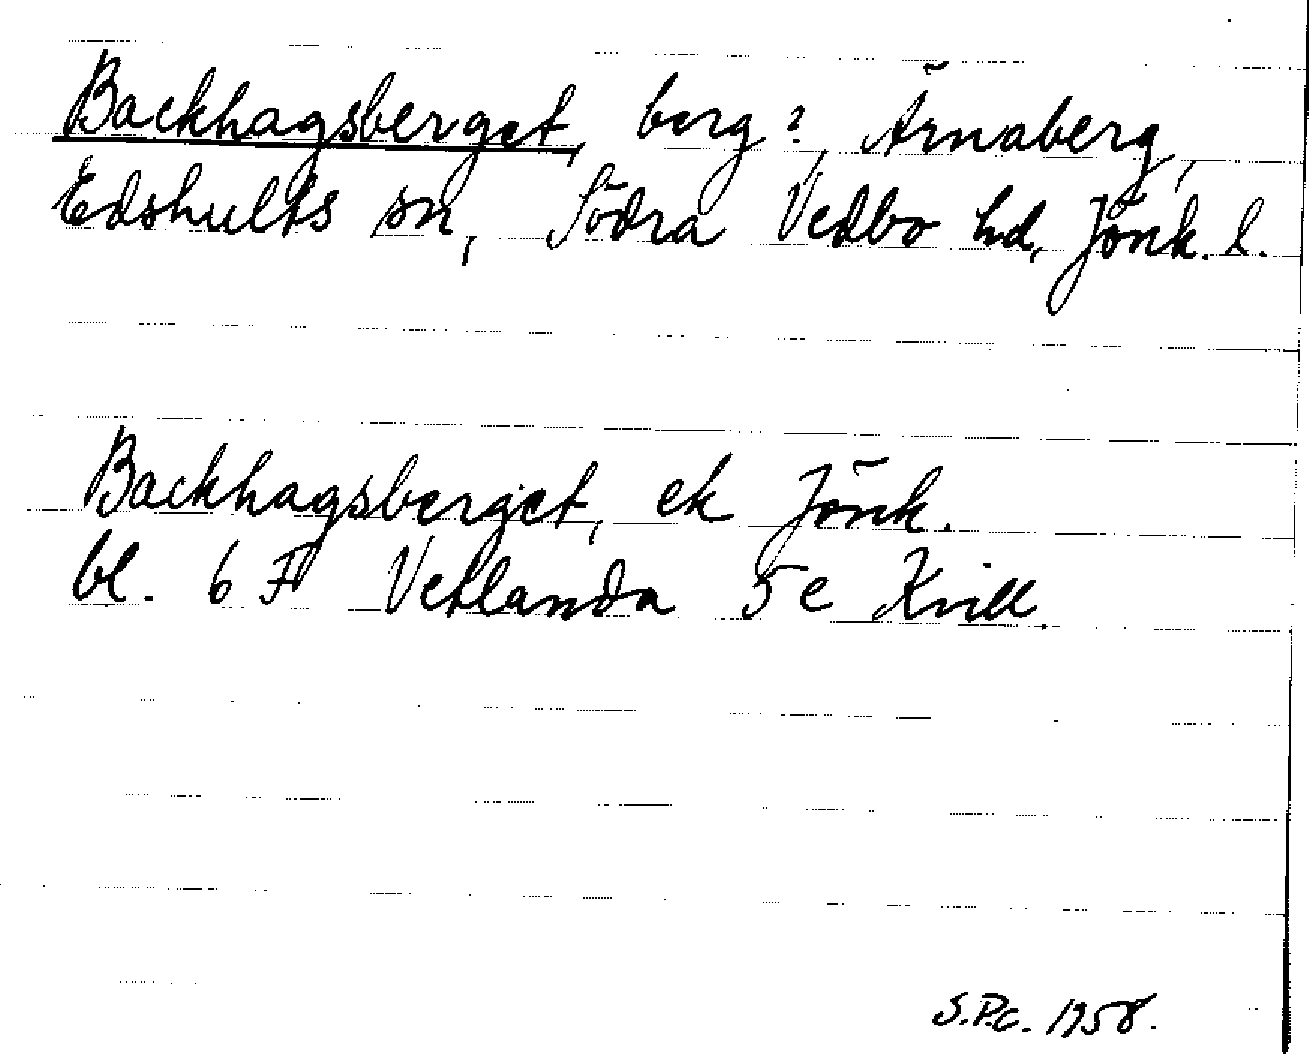 Backhagsberget, berg?, Ärnaberg,
Edshults sn, Södra Vedbo hd, Jönk. l.
Backhagsberget, ek Jönk.
bl. 6 F Vetlanda 5e Kvill.
S.P.C. 1958.